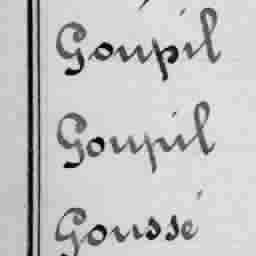 Goupil
Goupil
Goussé